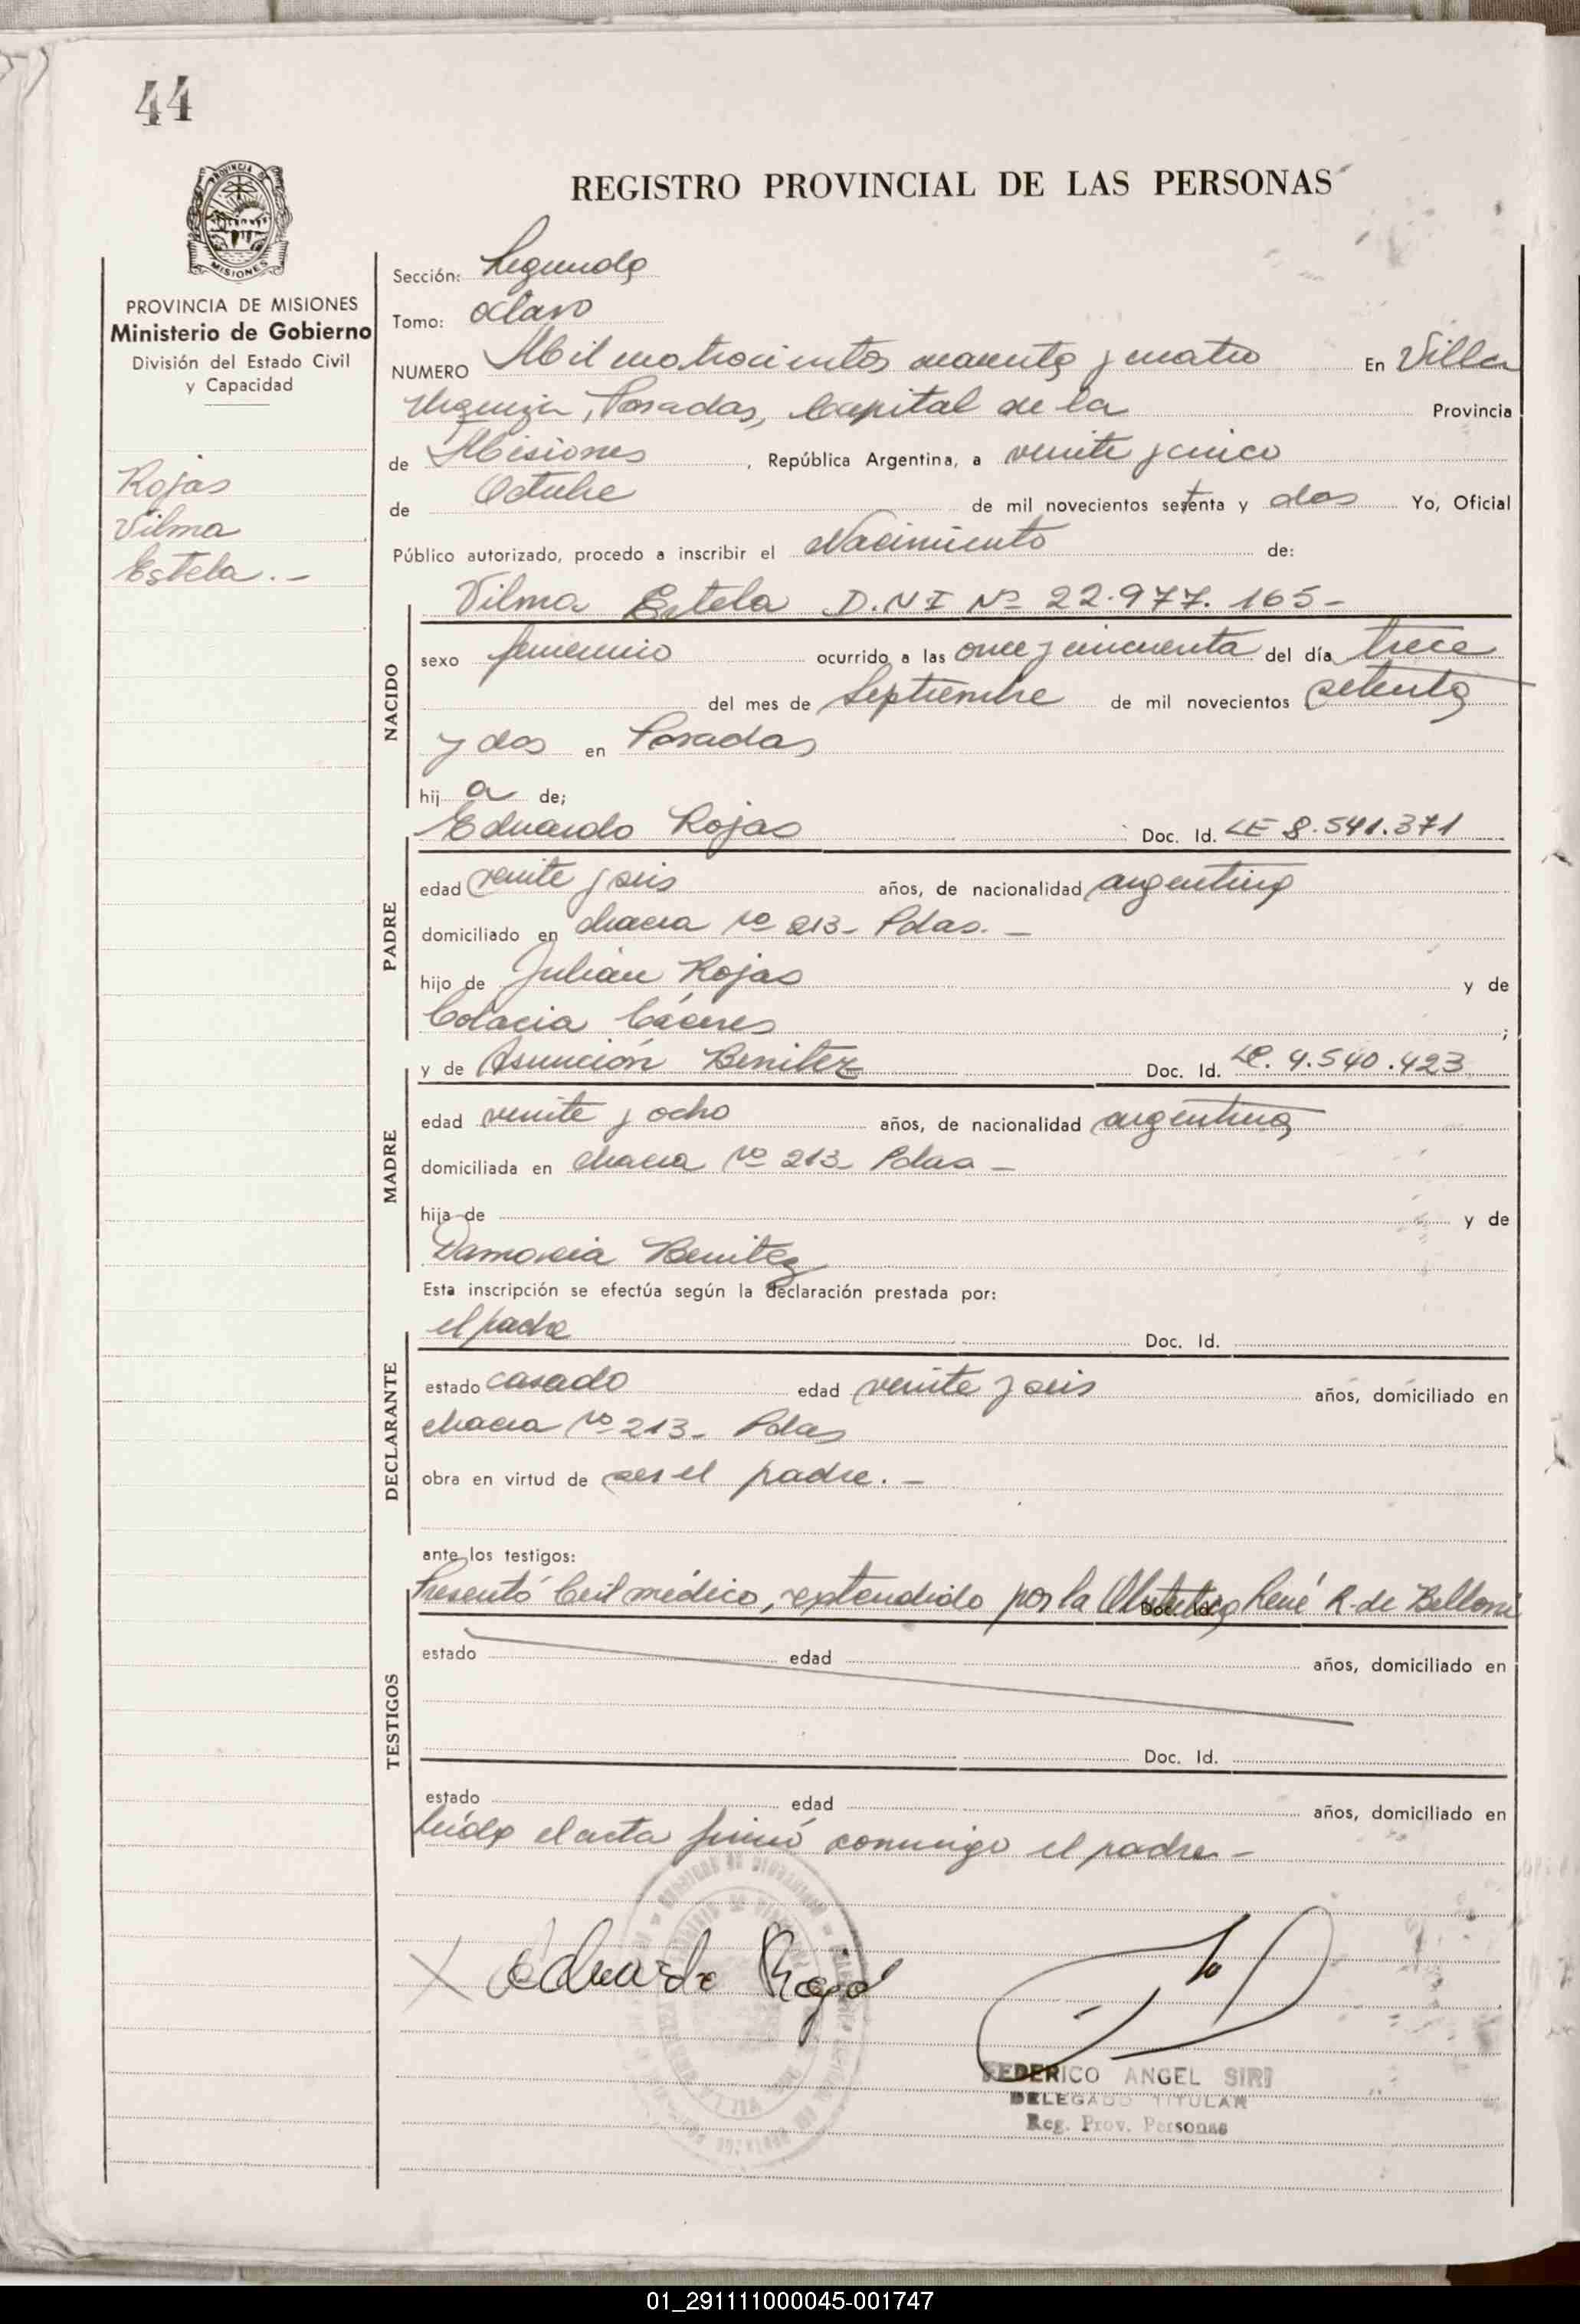 44
REGISTRO PROVINCIAL DE LAS PERSONAS
PROVINCIA DE MISIONES
Ministerio de Gobierno
División del Estado Civil
y Capacidad
Rojas
Vilma
Estela.-
Sección: Segunda
Tomo: octavo
NUMERO Mil cuatrocientos cuarenta y cuatro En Villa
Urquiza, Posadas, Capital de la Provincia
de Misiones, República Argentina, a veinte y cinco
de Octubre de mil novecientos setenta y dos Yo, Oficial
Público autorizado, procedo a inscribir el Nacimiento de:
Vilma Estela D.N.I Nº 22.977.165-
NACIDO
sexo femenino ocurrido a las once y cincuenta del día trece
del mes de Septiembre de mil novecientos setenta
y dos en Posadas
hij a de;
Eduardo Rojas Doc. Id. LE 8.541.371
PADRE
edad veinte y seis años, de nacionalidad argentino
domiciliado en chacra Nº 213- Pdas. -
hijo de Julián Rojas y de
Colacia Cáceres ;
y de Asunción Benitez Doc. Id. LC. 4.540.423
MADRE
edad veinte y ocho años, de nacionalidad argentina
domiciliada en chacra Nº 213- Pdas -
hija de y de
Benitez
Esta inscripción se efectúa según la declaración prestada por:
el padre Doc. Id.
DECLARANTE
estado casado edad veinte y seis años, domiciliado en
chacra Nº 213- Pdas
obra en virtud de ser el padre. -
ante los testigos:
Presentó Cert médico, extendido por la Obstetra René R. de Belloni
Doc. Id.
TESTIGOS
estado edad años, domiciliado en
Doc. Id.
estado edad años, domiciliado en
leída el acta firmó conmigo el padre. -
X Eduardo Rojas
FEDERICO ANGEL SIRI
DELEGADO TITULAR
Reg. Prov. Personas
01_291111000045-001747